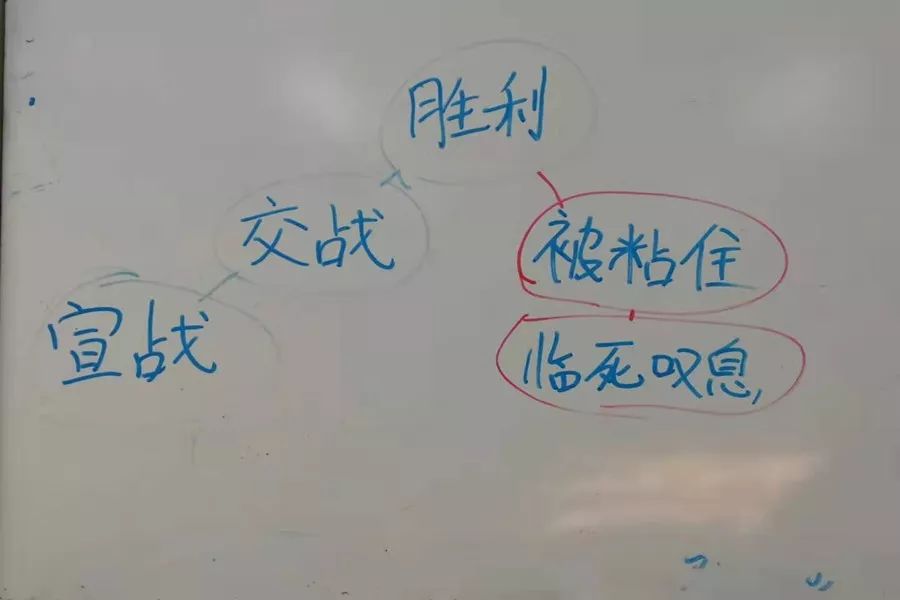 胜利
交战
被粘住
宣战
临死叹息,